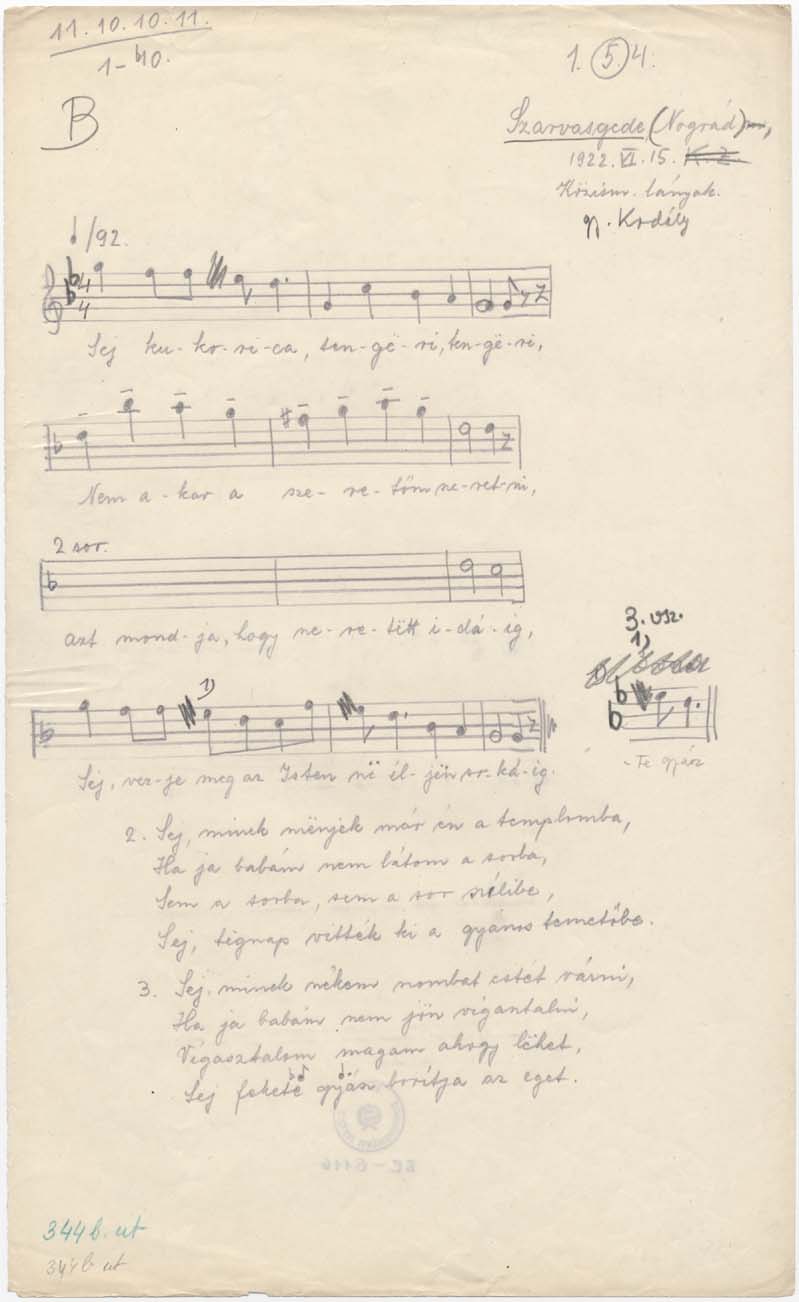 11. 10. 10. 11.
1-10.
1. 5. 4.
B
Szarvasgede (Nográd)
1922. VI. 15. K. Z.
Közism. lányok.
gy. Kodály
/92.
4
4
Sej ku-ko-ri-ca, ten-gë-ri, ten-gë-ri,
Nem a-kar a sze-re-tőm sze-ret-ni,
2 sor.
azt mond-ja, hogy sze-re-tëtt i-dá-ig,
1)
Sej, ver-je meg az Isten në él-jën so-ká-ig.
3. vsz.
1)
-Te gyász
2. Sej, minek mënjek már én a templomba,
Ha ja babám nem látom a sorba,
Sem a sorba, sem a sor szélibe,
Sej, tëgnap vitték ki a gyászos temetőbe.
3. Sej, minek nékem szombat estét várni,
Ha ja babám nem jön vigasztalni,
Vigasztalom magam ahogy lëhet,
Sej fekete gyász borítja az eget.
344 b. ut
344 b ut